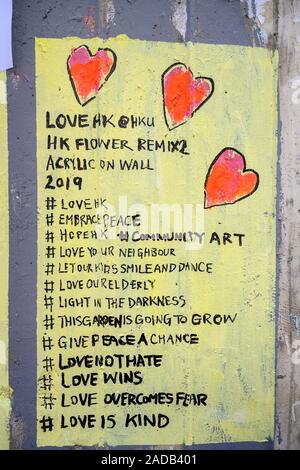 LOVE HK @ HKU
HK FLOWER REMIX2
ACRYLIC ON WALL
2019
# LOVE HK
# EMBRACE PEACE
# HOPE HK # COMMUNITY ART
# LOVE YOUR NEIGHBOUR
# LET OUR KIDS SMILE AND DANCE
# LOVE OUR ELDERLY
# LIGHT IN THE DARKNESS
# THIS GARDEN IS GOING TO GROW
# GIVE PEACE A CHANCE
# LOVE NOT HATE
# LOVE WINS
# LOVE OVERCOMES FEAR
# LOVE IS KIND
alamy
Image ID: 2ADB401
www.alamy.com